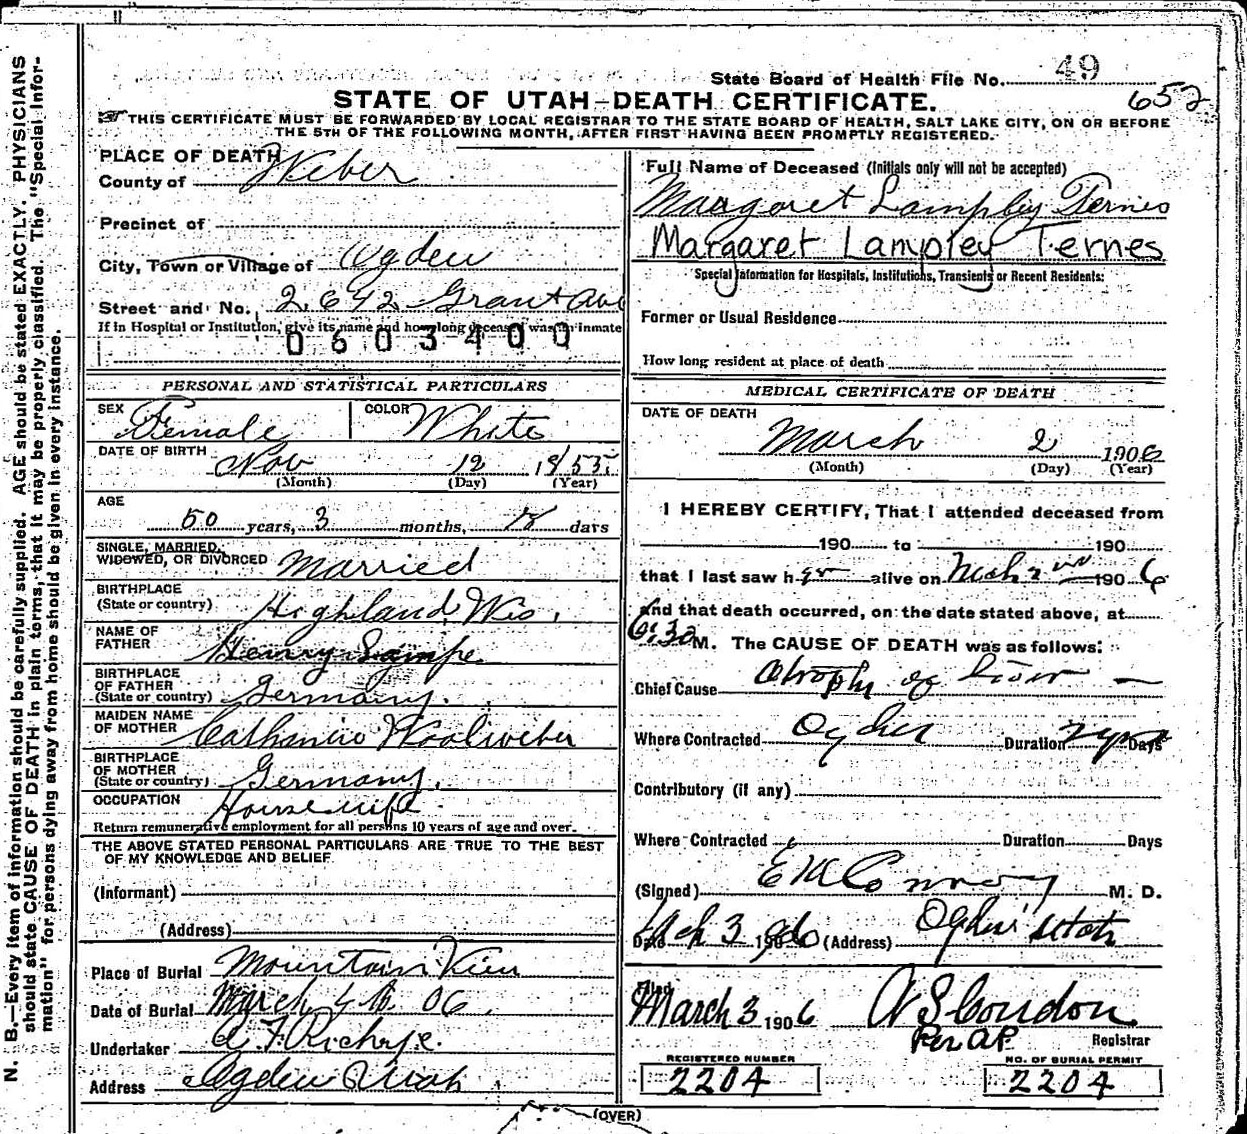 State Board of Health File No. 49
652
STATE OF UTAH—DEATH CERTIFICATE.
THIS CERTIFICATE MUST BE FORWARDED BY LOCAL REGISTRAR TO THE STATE BOARD OF HEALTH, SALT LAKE CITY, ON OR BEFORE
THE 5TH OF THE FOLLOWING MONTH, AFTER FIRST HAVING BEEN PROMPTLY REGISTERED.
N. B.—Every item of information should be carefully supplied. AGE should be stated EXACTLY. PHYSICIANS
should state CAUSE OF DEATH in plain terms, that it may be properly classified. The "Special Infor-
mation" for persons dying away from home should be given in every instance.
PLACE OF DEATH
County of Weber
Precinct of
City, Town or Village of Ogden
Street and No. 2642 Grant Ave
If in Hospital or Institution, give its name and how long deceased was an inmate
0603400
PERSONAL AND STATISTICAL PARTICULARS
SEX Female COLOR White
DATE OF BIRTH Nov 12 1855
(Month) (Day) (Year)
AGE
50 years, 3 months, 18 days
SINGLE, MARRIED,
WIDOWED, OR DIVORCED Married
BIRTHPLACE
(State or country) Highland, Wis.
NAME OF
FATHER Henry Lampe
BIRTHPLACE
OF FATHER
(State or country) Germany.
MAIDEN NAME
OF MOTHER Catharine Woolweber
BIRTHPLACE
OF MOTHER
(State or country) Germany.
OCCUPATION Housewife
Return remunerative employment for all persons 10 years of age and over.
THE ABOVE STATED PERSONAL PARTICULARS ARE TRUE TO THE BEST
OF MY KNOWLEDGE AND BELIEF
(Informant)
(Address)
Place of Burial Mountain View
Date of Burial March 4th 06.
Undertaker
Address Ogden Utah
Full Name of Deceased (Initials only will not be accepted)
Margaret Lampley Ternes
Margaret Lampley Ternes
Special Information for Hospitals, Institutions, Transients or Recent Residents:
Former or Usual Residence
How long resident at place of death
MEDICAL CERTIFICATE OF DEATH
DATE OF DEATH
March 2 1906
(Month) (Day) (Year)
I HEREBY CERTIFY, That I attended deceased from
190 to 190
that I last saw her alive on Mch 2nd 1906
and that death occurred, on the date stated above, at
6:30 M. The CAUSE OF DEATH was as follows:
Chief Cause Atrophy of Liver
Where Contracted Ogden Duration 2 yrs Days
Contributory (if any)
Where Contracted Duration Days
(Signed) E M Conroy M. D.
Date Mch 3 1906 (Address) Ogden Utah
Filed March 3 1906 A S Condon
Per A.P. Registrar
REGISTERED NUMBER
2204
NO. OF BURIAL PERMIT
2204
(OVER)